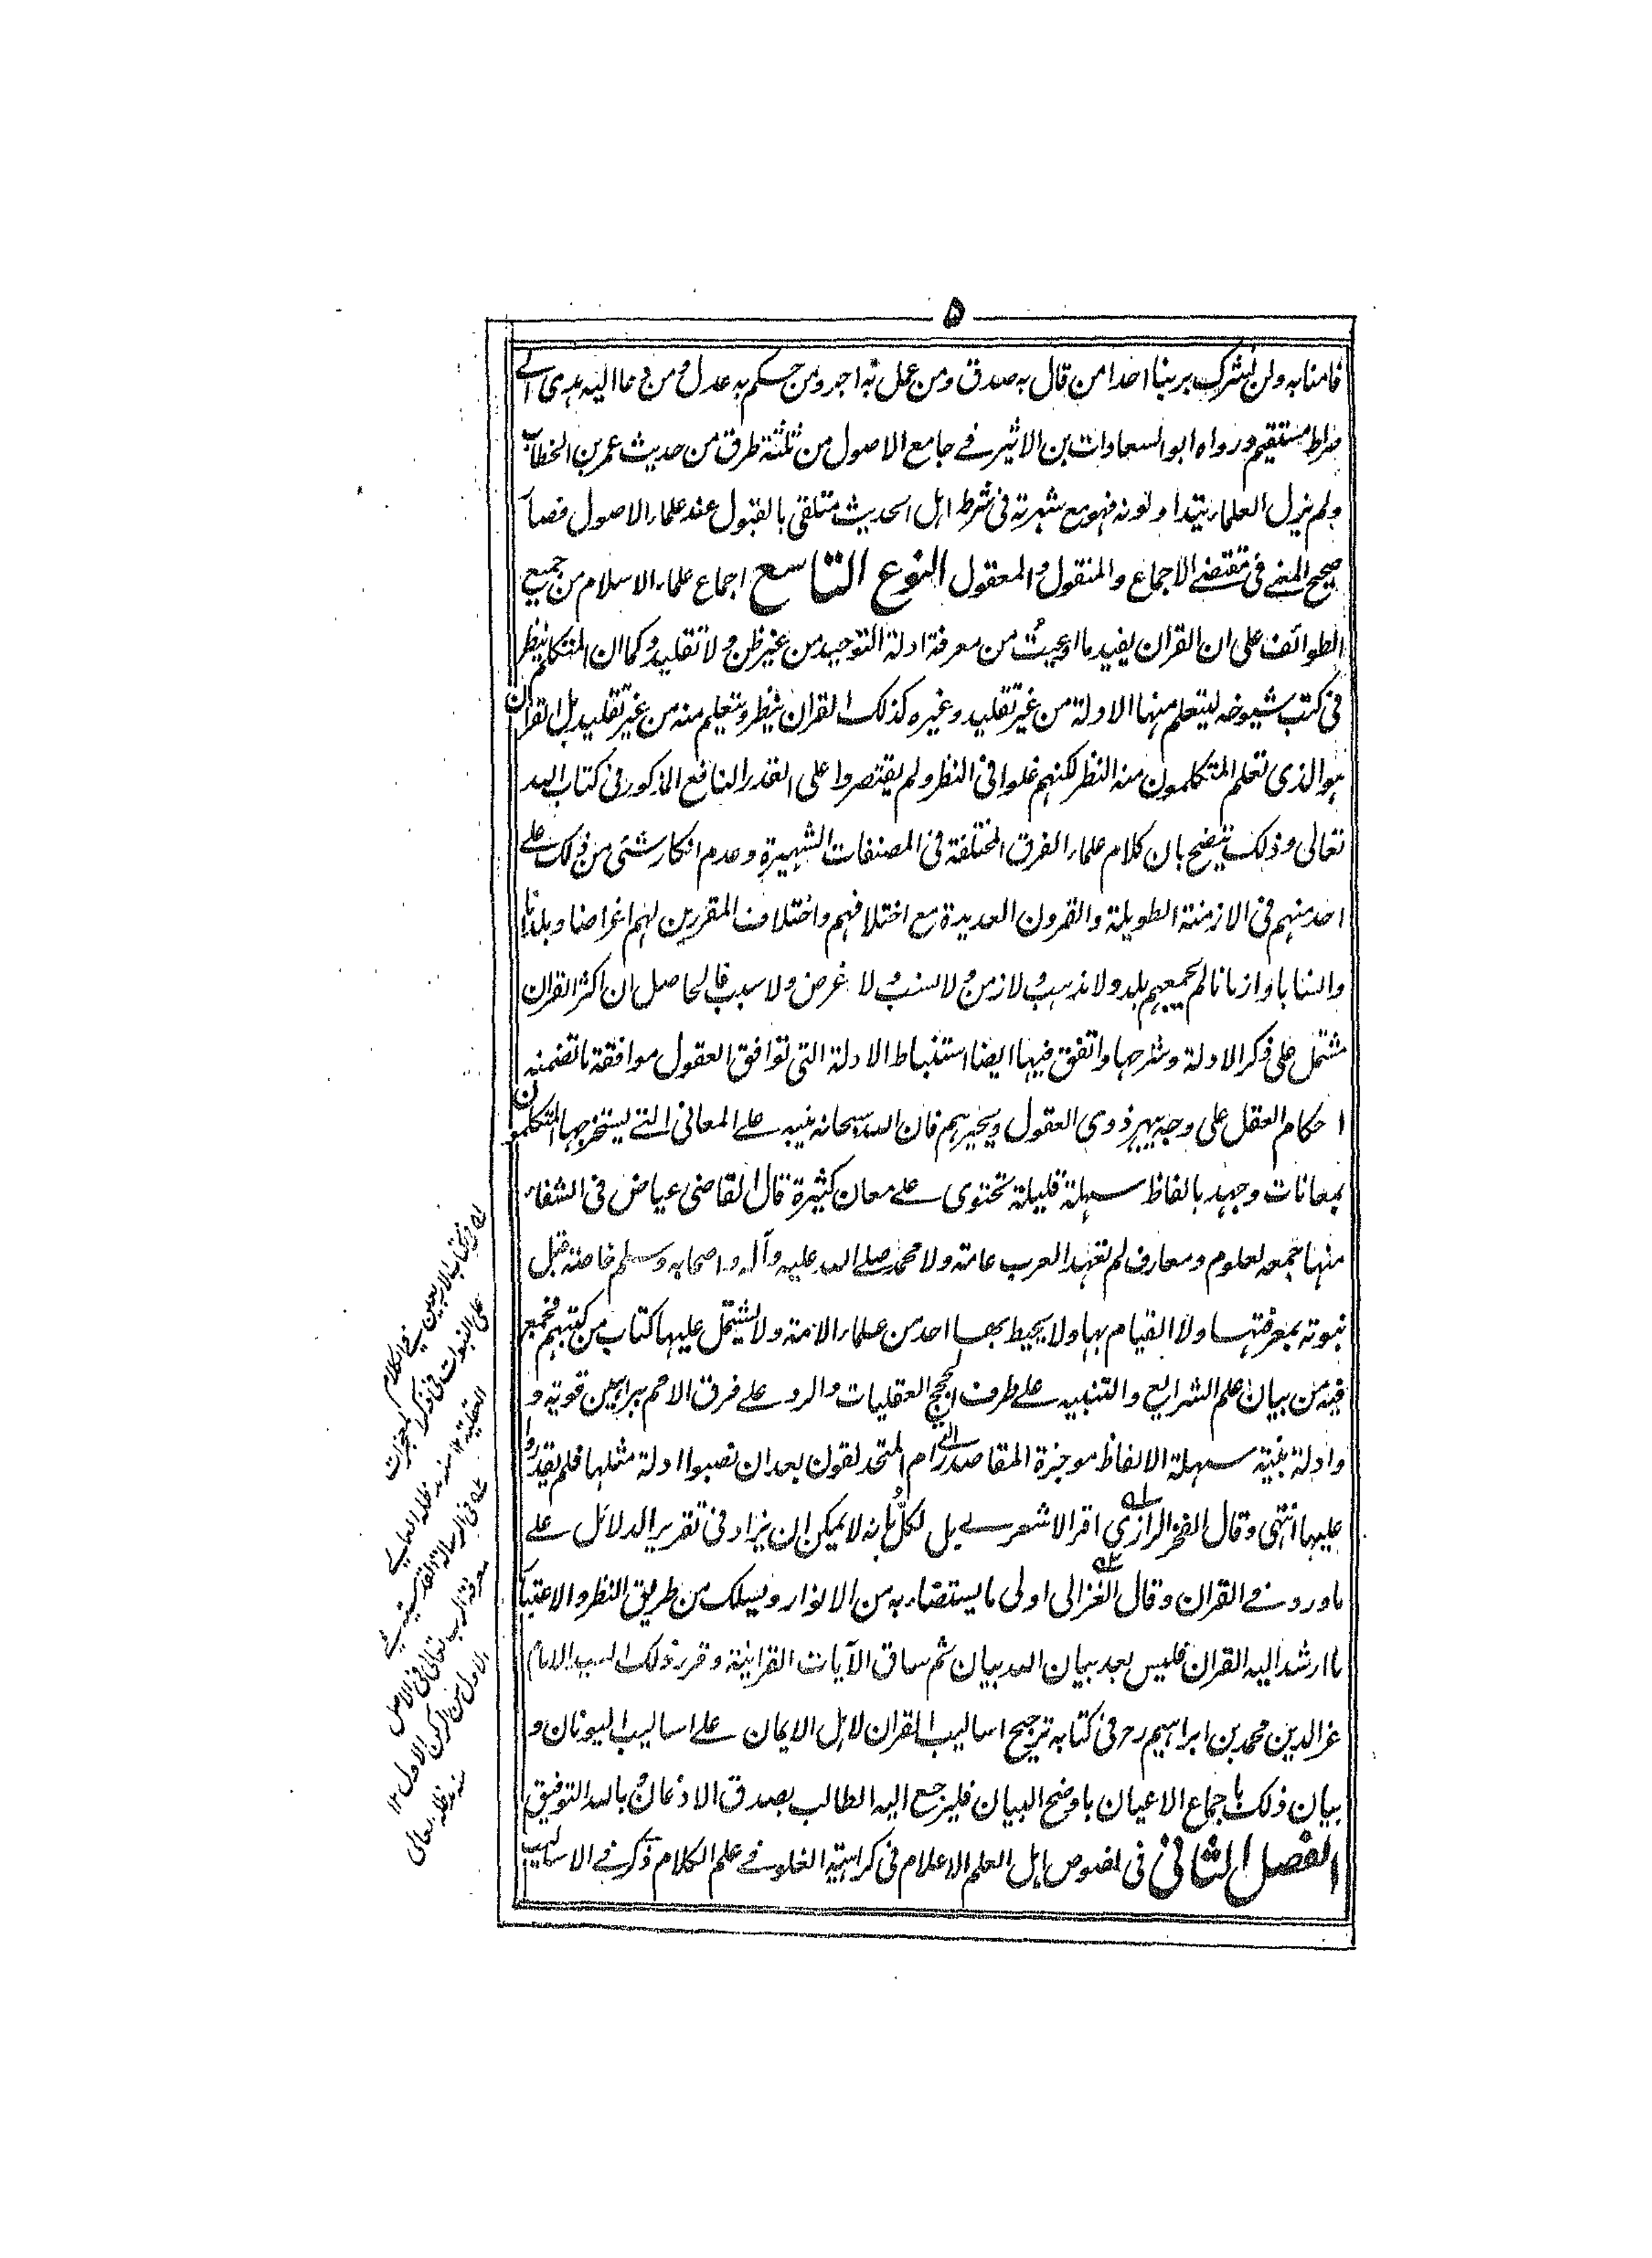 ٥
فامنا به ولن نشرك بربنا احدا من قال به صدق ومن عمل به اجر ومن حكم به عدل ومن دعا اليه هدى الى
صراط مستقيم ورواه ابو السعادات بن الاثير فے جامع الاصول من ثلثة طرق من حديث عمر بن الخطاب
ولم يزل العلماء يتداولونه فهو مع شهرته فى شرط اهل الحديث متلقى بالقبول عند علماء الاصول فصار
صحيح المعنے فى مقتضے الاجماع والمنقول والمعقول النوع التاسع اجماع علماء الاسلام من جميع
الطوائف على ان القران يفيد ما اوجبت من معرفة ادلة التوحيد من غير ظن ولا تقليد وكما ان المتكلم ينظر
فى كتب شيوخه ليتعلم منها الادلة من غير تقليد وغيره كذلك القران ينظر ويتعلم منه من غير تقليد بل القران
هو الذى تعلم المتكلمون منه النظر لكنهم غلوا فى النظر ولم يقتصروا على القدر النافع المذكور فى كتاب الله
تعالى وذلك يتضح بان كلام علماء الفرق المختلفة فى المصنفات الشهيرة وعدم انكار شئ من ذلك علے
احد منهم فى الازمنة الطويلة والقرون العديدة مع اختلافهم واختلاف المقررين لهم اغراضا وبلدانا
وانسابا وازمانا لم يجمعهم بلد ولا مذهب ولا زمن ولا نسب ولا غرض ولا سبب فالحاصل ان اكثر القران
مشتمل على ذكر الادلة وشرحها واتفق فيها ايضا استنباط الادلة التى توافق العقول موافقة ما تضمنه
احكام العقل على وجه يبهر ذوى العقول ويحيرهم فان الله سبحانه نبيه علے المعانى التے ليستخرجها المتكلمون
بمعانات وجهد بالفاظ سهلة قليلة تحتوى علے معان كثيرة قال القاضى عياض فى الشفاء
منها جمعه لعلوم ومعارف لم تعهد العرب عامة ولا محمد صلے الله عليه وآله واصحابه وسلم خاصة قبل
نبوته بمعرفتها ولا القيام بها ولا يحيط بها احد من علماء الامة ولا يشتمل عليها كتاب من كتبهم فجمع
فيه من بيان علم الشرايع والتنبيه علے طرف الحجج العقليات والرد علے فرق الامم ببراهين قوية و
وادلة بينة سهلة الالفاظ موجزة المقاصد رام المتحذلقون بعد ان نصبوا ادلة مثلها فلم يقدروا
عليها انتهى وقال الفخر الرازى اقر الاشعرے بل لكل بانه لا يمكن ان يزاد فى تقرير الدلائل علے
ما ورد فے القران وقال الغزالى اولى ما يستضاء به من الانوار ويسلك من طريق النظر والاعتبار
ما ارشد اليه القران فليس بعد بيان الله بيان ثم ساق الآيات القرانية وقرر ذلك السيد الامام
عز الدين محمد بن ابراهيم رح فى كتابه ترجيح اساليب القران لاهل الايمان علے اساليب اليونان و
بيان ذلك باجماع الاعيان باوضح البيان فليرجع اليه الطالب بصدق الاذعان وبالله التوفيق
الفصل الثانى فى نصوص اهل العلم الاعلام فى كراهية الغلو فے علم الكلام ذكر فے الاساليب
له فى كتاب الاربعين فے الكلام
على النبوات فى ذكر المعجزات
العقلية ١٢ منه مد ظله العالے
له فى الرسالة القدسية فے
معرفة الرب تعالى فى الاصل
الاول من الركن الاول ١٢
منه مد ظله العالى